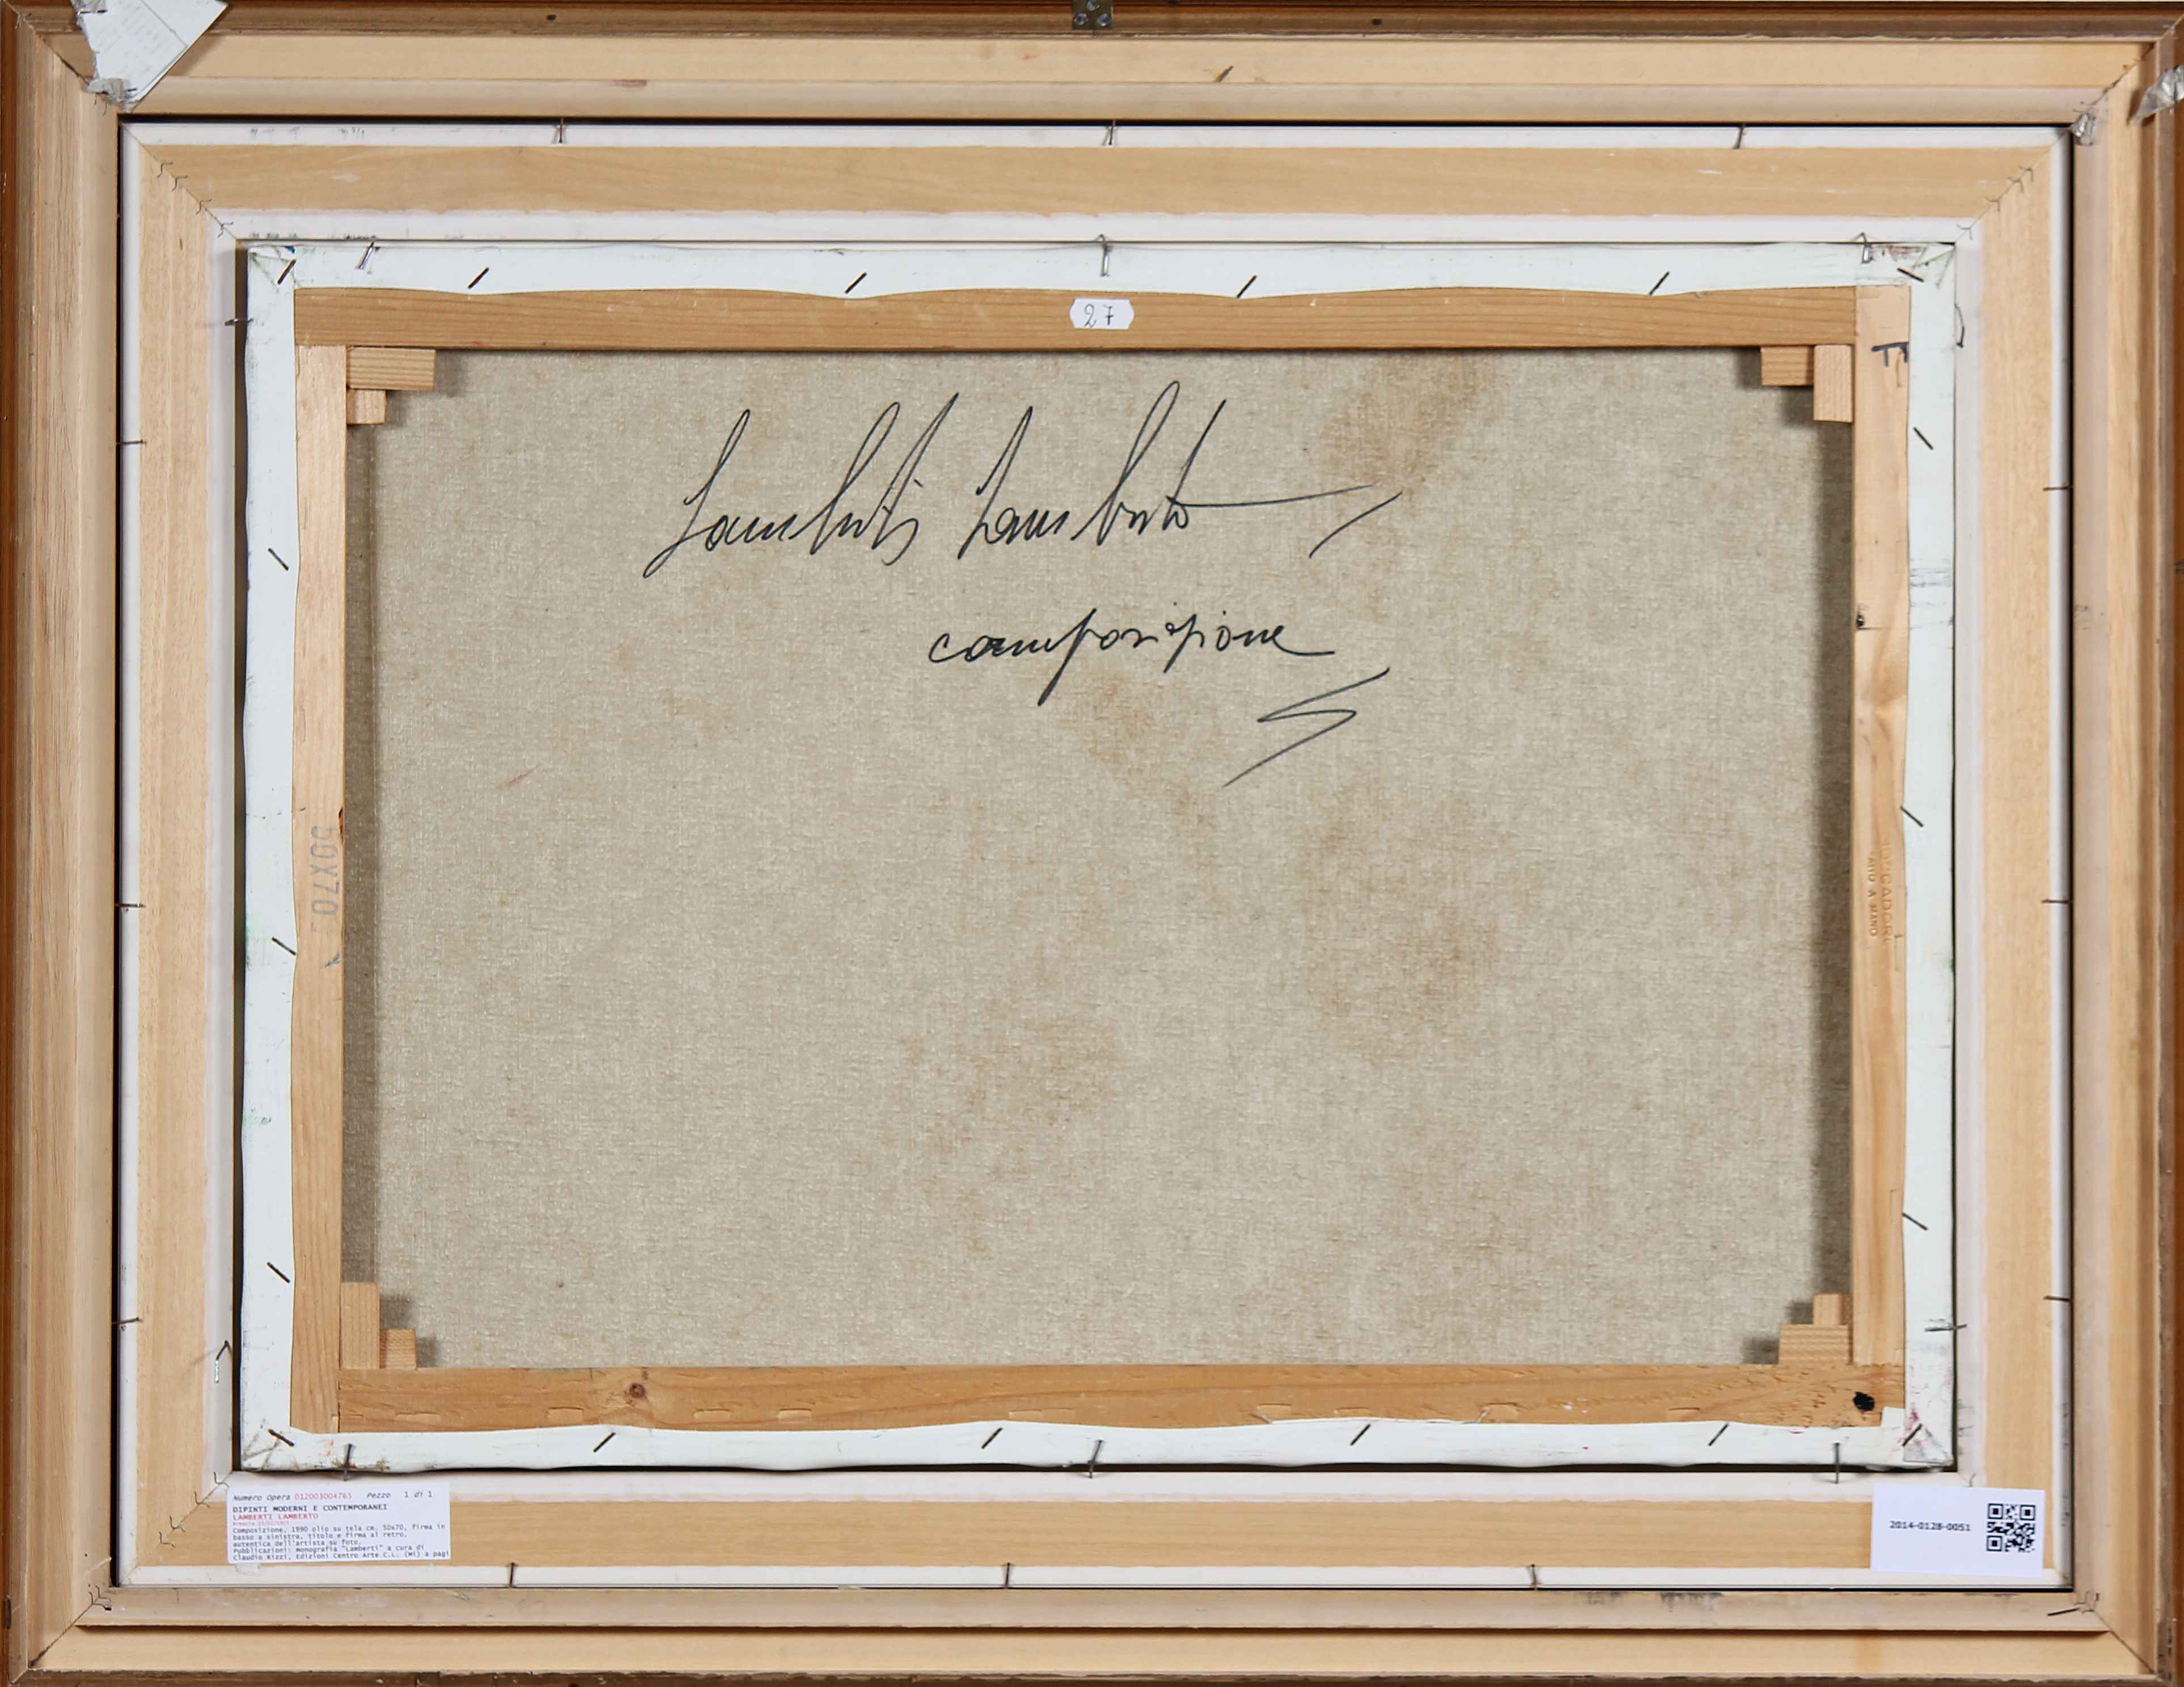 27
Lamberti Lamberto
composizione
50X70
Numero Opera 012003004765 Pezzo 1 di 1
DIPINTI MODERNI E CONTEMPORANEI
LAMBERTI LAMBERTO
Composizione, 1990 olio su tela cm. 50x70, firma in
basso a sinistra, titolo e firma al retro.
autentica dell'artista su foto.
Pubblicazioni: monografia "Lamberti" a cura di
Claudio Rizzi, Edizioni Centro Arte C.L. (MI) a pagi
2014-0128-0051